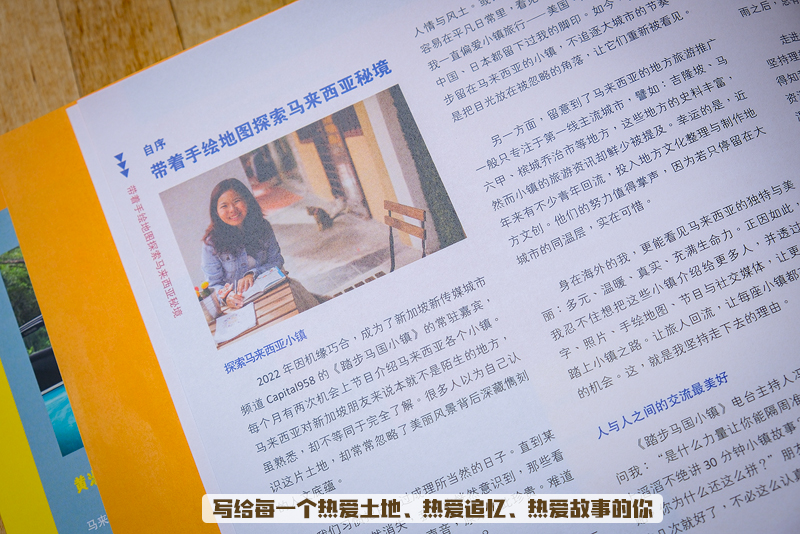 自序
带着手绘地图探索马来西亚秘境
带着手绘地图探索马来西亚秘境
探索马来西亚小镇
2022 年因机缘巧合，成为了新加坡新传媒城市
频道 Capital958 的《踏步马国小镇》的常驻嘉宾，
每个月有两次机会上节目介绍马来西亚各个小镇。
马来西亚对新加坡朋友来说本就不是陌生的地方，
虽熟悉，却不等同于完全了解。很多人以为自己认
识这片土地，却常常忽略了美丽风景背后深藏儁到
底蕴。
理所当然的日子。直到某
然意识到，那些看
贵。难道
人情与风土。或
容易在平凡日常里，看见
我一直偏爱小镇旅行——美国
中国、日本都留下过我的脚印。如今
步留在马来西亚的小镇，不追逐大城市的节奏
是把目光放在被忽略的角落，让它们重新被看见。
另一方面，留意到了马来西亚的地方旅游推广
一般只专注于第一线主流城市，譬如：吉隆坡、马
六甲、槟城乔治市等地方，这些地方的史料丰富，
然而小镇的旅游资讯却鲜少被提及。幸运的是，近
年来有不少青年回流，投入地方文化整理与制作地
方文创。他们的努力值得掌声，因为若只停留在大
城市的同温层，实在可惜。
身在海外的我，更能看见马来西亚的独特与美
丽：多元、温暖、真实、充满生命力。正因如此，
我忍不住想把这些小镇介绍给更多人，并透过
字、照片、手绘地图、节目与社交媒体，让更
踏上小镇之路。让旅人回流，让每座小镇都
的机会。这，就是我坚持走下去的理由。
人与人之间的交流最美好
《踏步马国小镇》电台主持人
问我：“是什么力量让你能隔周准
滔滔不绝讲 30 分钟小镇故事
你为什么还这么拼？”朋友
几次就好了，不必这么认真
雨之后，
走进
坚持理
得知
资
写给每一个热爱土地、热爱追忆、热爱故事的你